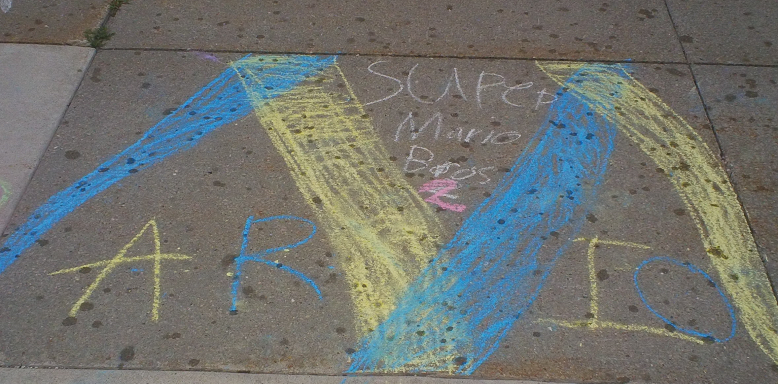 SUPER
Mario
Bros
2
MARIO